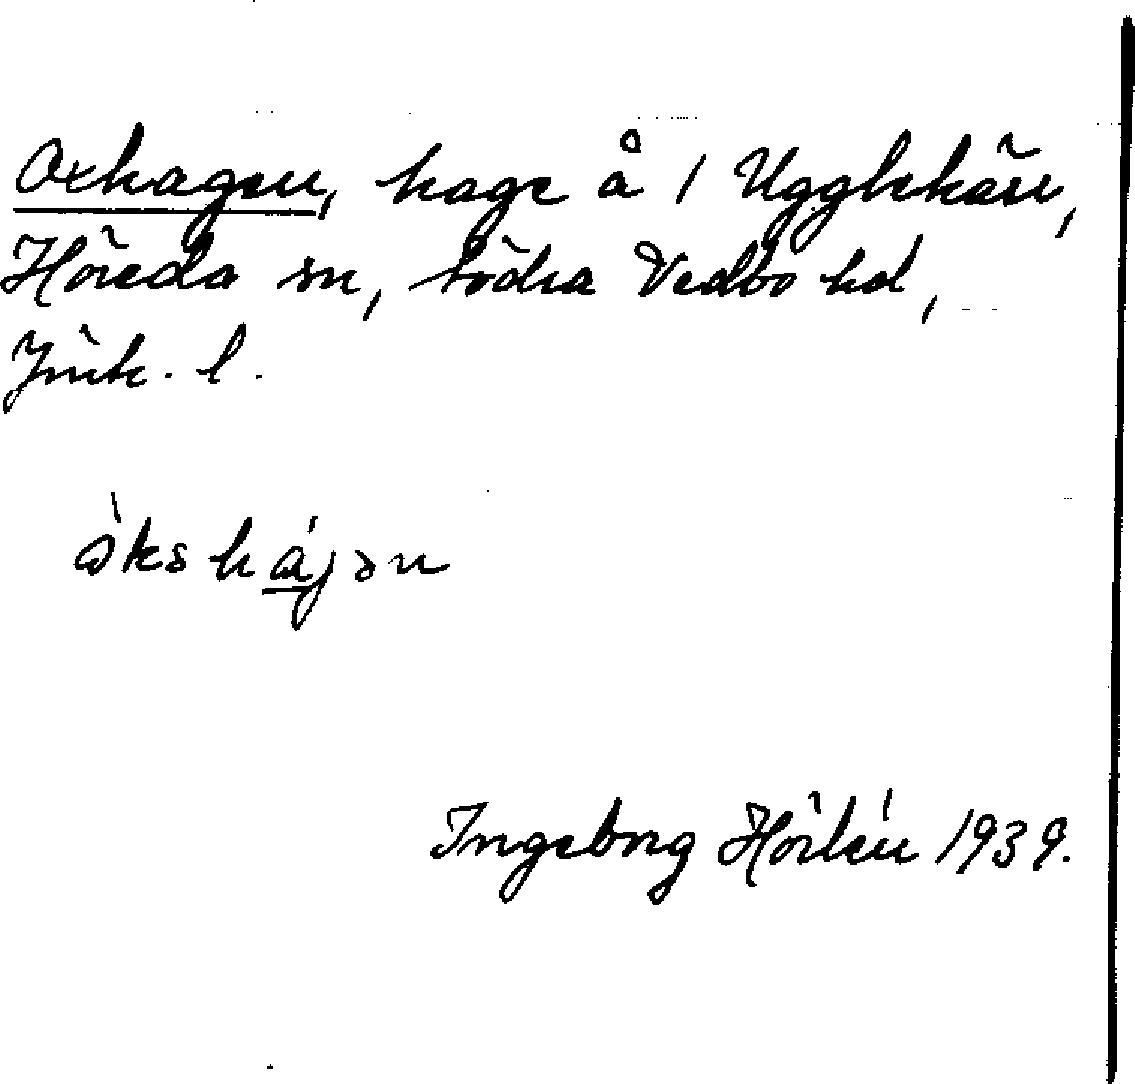 Oxhagen, hage å 1 Ugglekärr,
Höreda sn, södra Vedbo hd,
Jnk. l.
òkshájən
Ingeborg Hörlén 1939.